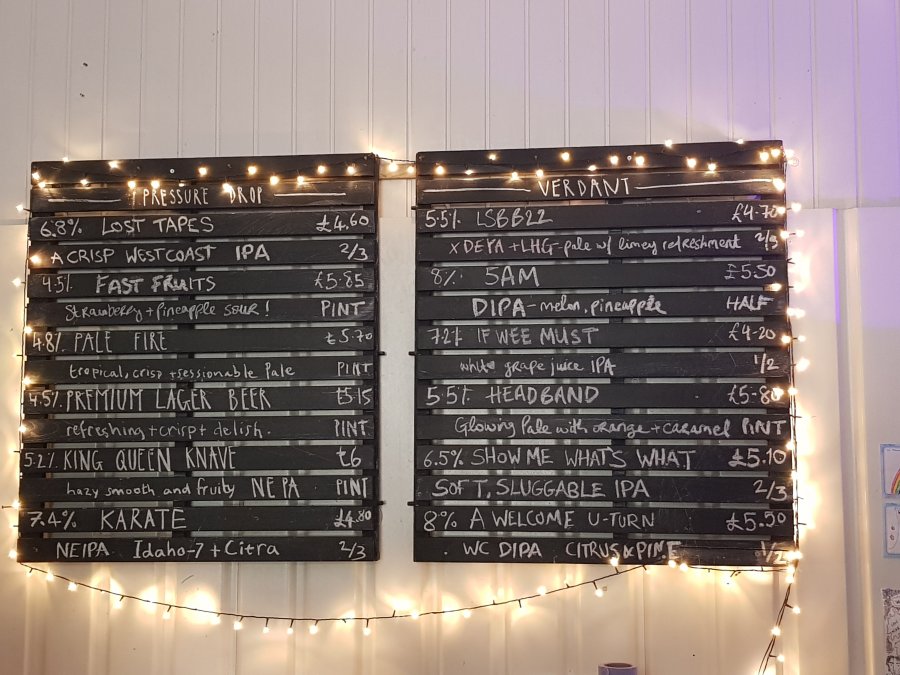 PRESSURE DROP
6.8% LOST TAPES £4.60
A CRISP WESTCOAST IPA 2/3
4.5% FAST FRUITS £5.85
Strawberry + pineapple sour! PINT
4.8% PALE FIRE £5.70
tropical, crisp + sessionable Pale PINT
4.5% PREMIUM LAGER BEER £5.15
refreshing + crisp + delish. PINT
5.2% KING QUEEN KNAVE £6
hazy smooth and fruity NEPA PINT
7.4% KARATE £4.80
NEIPA Idaho-7 + Citra 2/3
VERDANT
5.5% LSBB22 £4.70
x DEYA + LHG-pale w/ limey refreshment 2/3
8% 5AM £5.50
DIPA - melon, pineapple HALF
7.2% IF WEE MUST £4.20
white grape juice IPA 1/2
5.5% HEADBAND £5.80
Glowing Pale with orange + caramel PINT
6.5% SHOW ME WHAT'S WHAT £5.10
SOFT, SLUGGABLE IPA 2/3
8% A WELCOME U-TURN £5.50
WC DIPA CITRUS & PINE 1/2